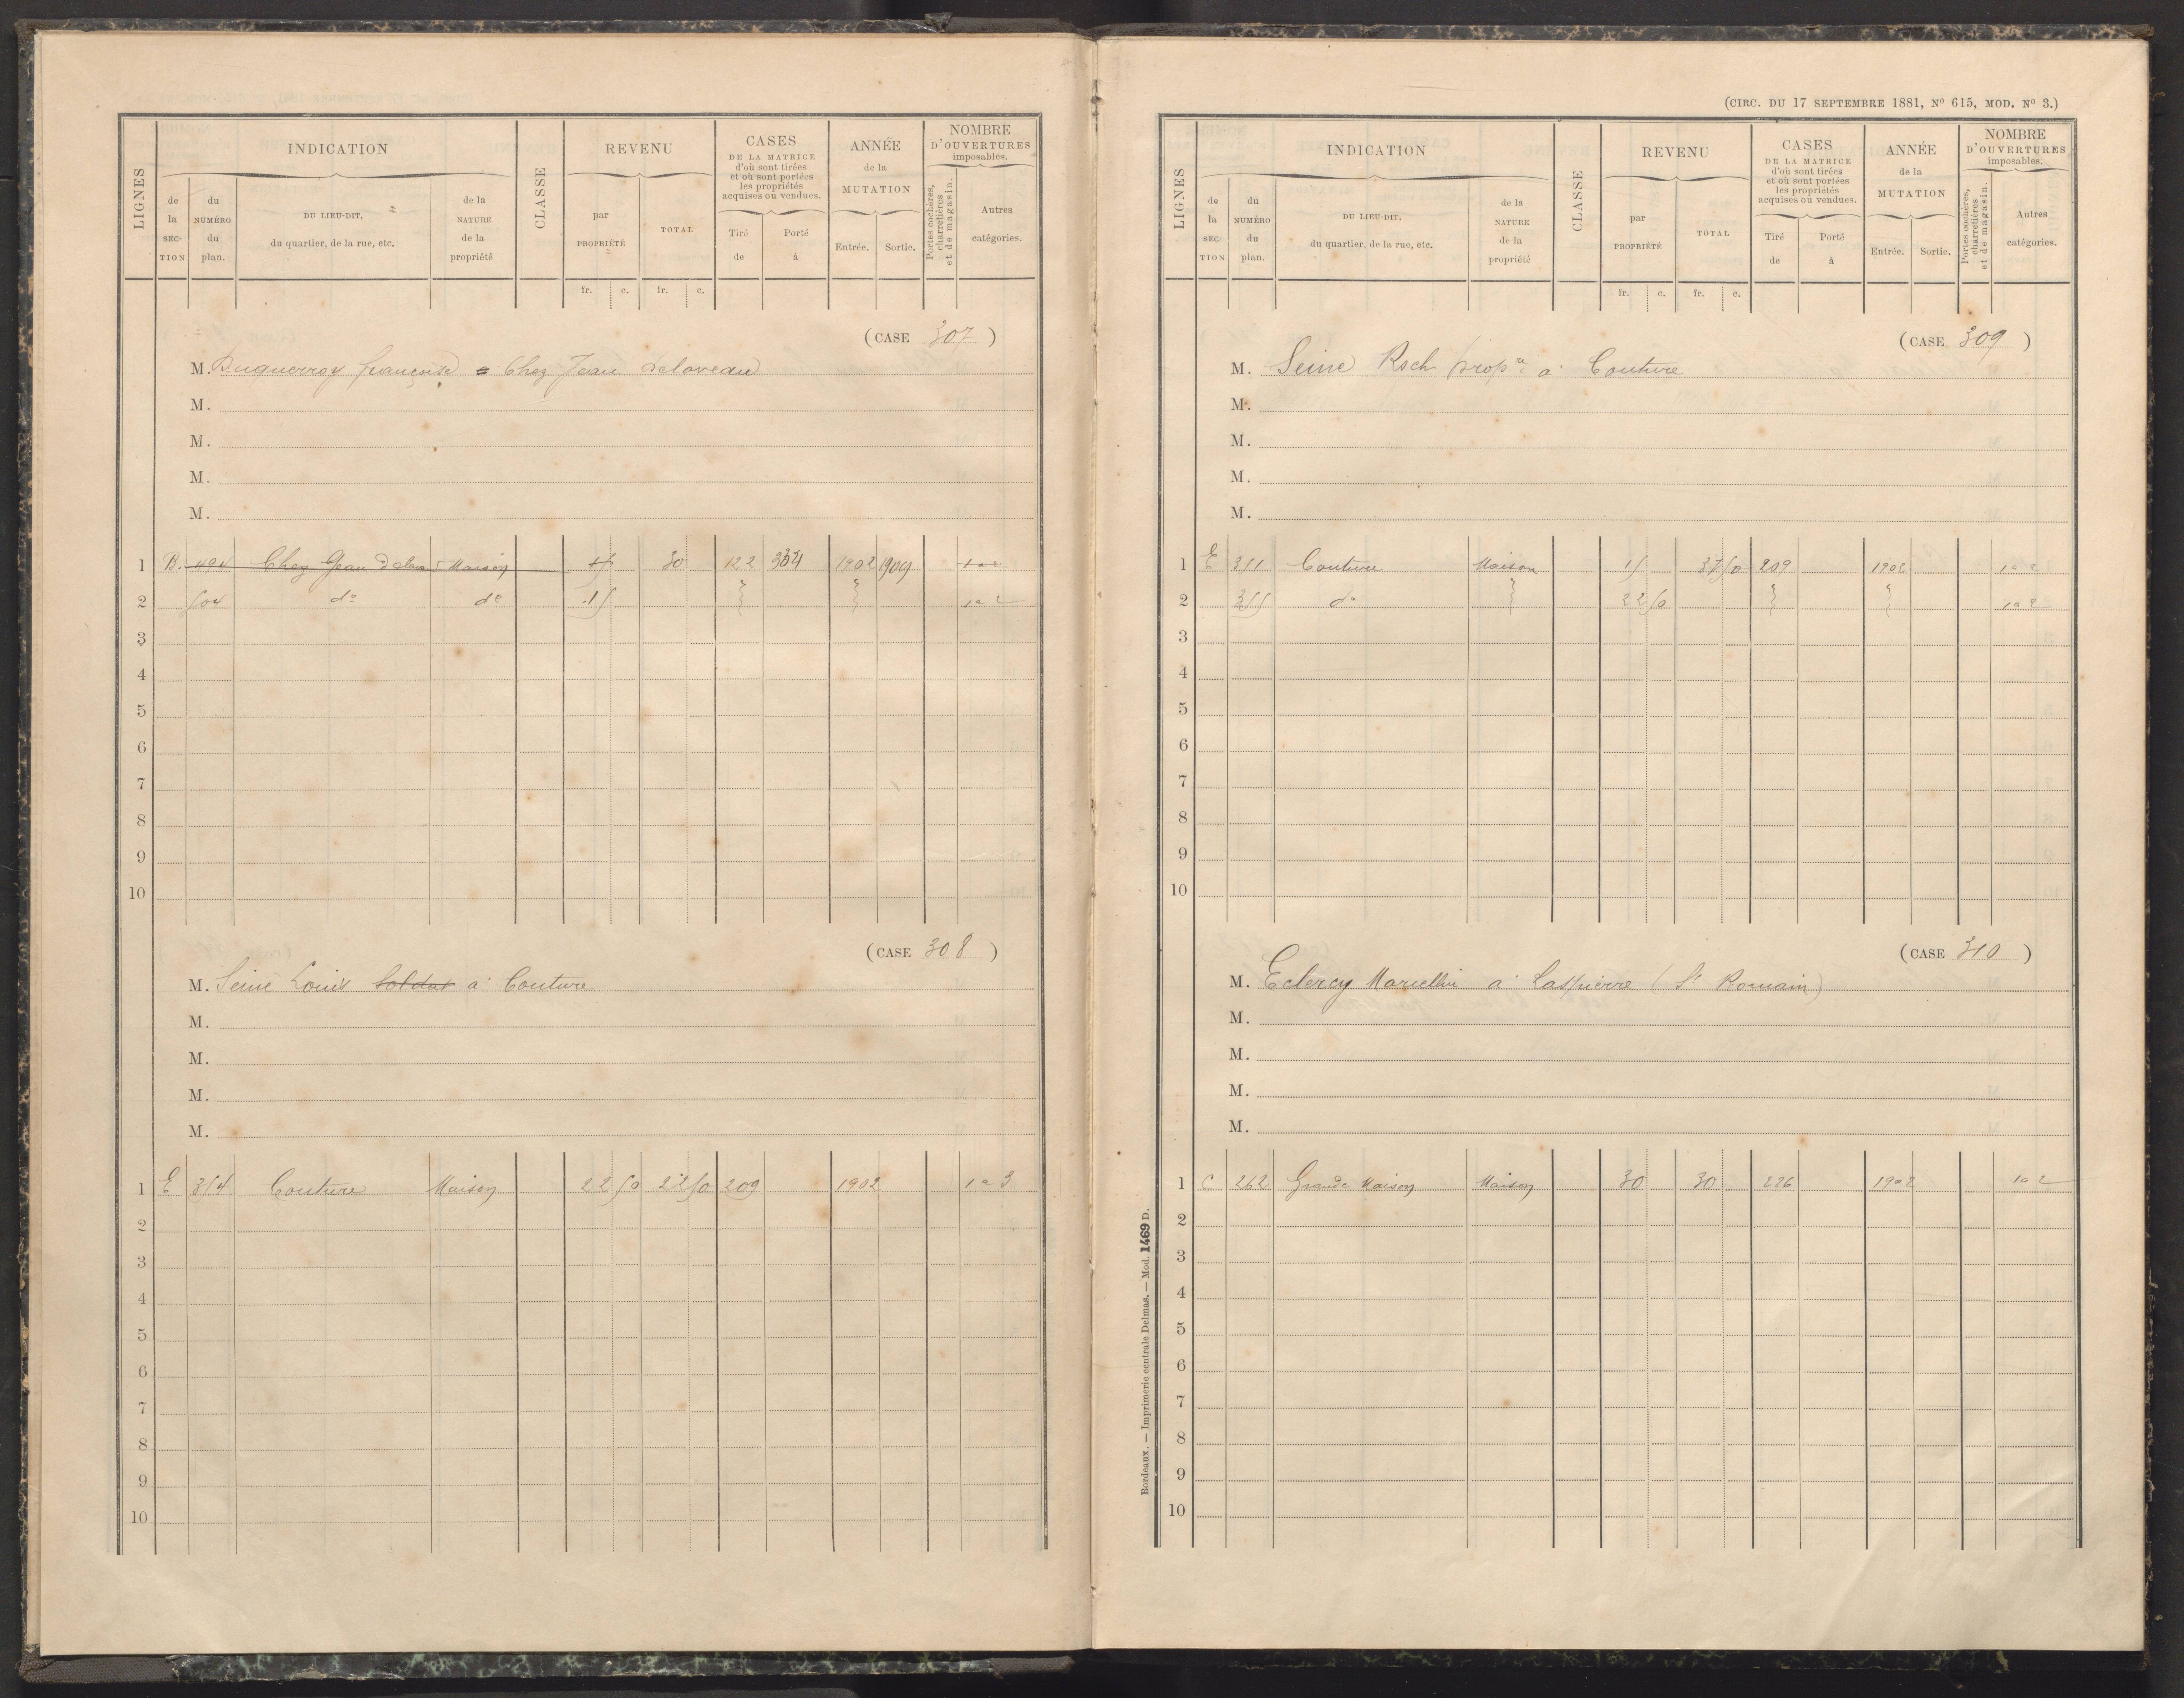 LIGNES
INDICATION
de la SECTION
du NUMÉRO du plan.
DU LIEU-DIT, du quartier, de la rue, etc.
de la NATURE de la propriété
CLASSE
REVENU
par PROPRIÉTÉ
TOTAL
CASES DE LA MATRICE d'où sont tirées et où sont portées les propriétés acquises ou vendues.
Tiré de
Porté à
ANNÉE de la MUTATION
Entrée. Sortie.
NOMBRE D'OUVERTURES imposables.
Portes cochères, charretières et de magasin.
Autres catégories.
fr. c. fr. c.
(CASE 307)
M. Duquerroy françoise Chez Jean Delaveau
M.
M.
M.
M.
1 B. 494 Chez Jean Maison 15 30 122 1902 1909 1 a 2
2 504 do do 15 1 a 2
3
4
5
6
7
8
9
10
(CASE 308)
M. Seine Louis Soldat à Couture
M.
M.
M.
M.
1 E 354 Couture Maison 22 50 22 50 209 1902 1 a 3
2
3
4
5
6
7
8
9
10
(CIRC. DU 17 SEPTEMBRE 1881, No 615, MOD. No 3.)
LIGNES
INDICATION
de la SECTION
du NUMÉRO du plan.
DU LIEU-DIT, du quartier, de la rue, etc.
de la NATURE de la propriété
CLASSE
REVENU
par PROPRIÉTÉ
TOTAL
CASES DE LA MATRICE d'où sont tirées et où sont portées les propriétés acquises ou vendues.
Tiré de
Porté à
ANNÉE de la MUTATION
Entrée. Sortie.
NOMBRE D'OUVERTURES imposables.
Portes cochères, charretières et de magasin.
Autres catégories.
fr. c. fr. c.
(CASE 309)
M. Seine Roch propre à Couture
M.
M.
M.
M.
1 E 351 Couture Maison 15 37 50 209 1902 1 a 2
2 355 do 22 50 1 a 2
3
4
5
6
7
8
9
10
(CASE 310)
M. Eclercy Marcellin à Laspierre (St Romain)
M.
M.
M.
M.
1 C 262 Grande Maison Maison 30 30 226 1902 1 a 2
2
3
4
5
6
7
8
9
10
Bordeaux. — Imprimerie centrale Delmas. — Mod. 1469 D.